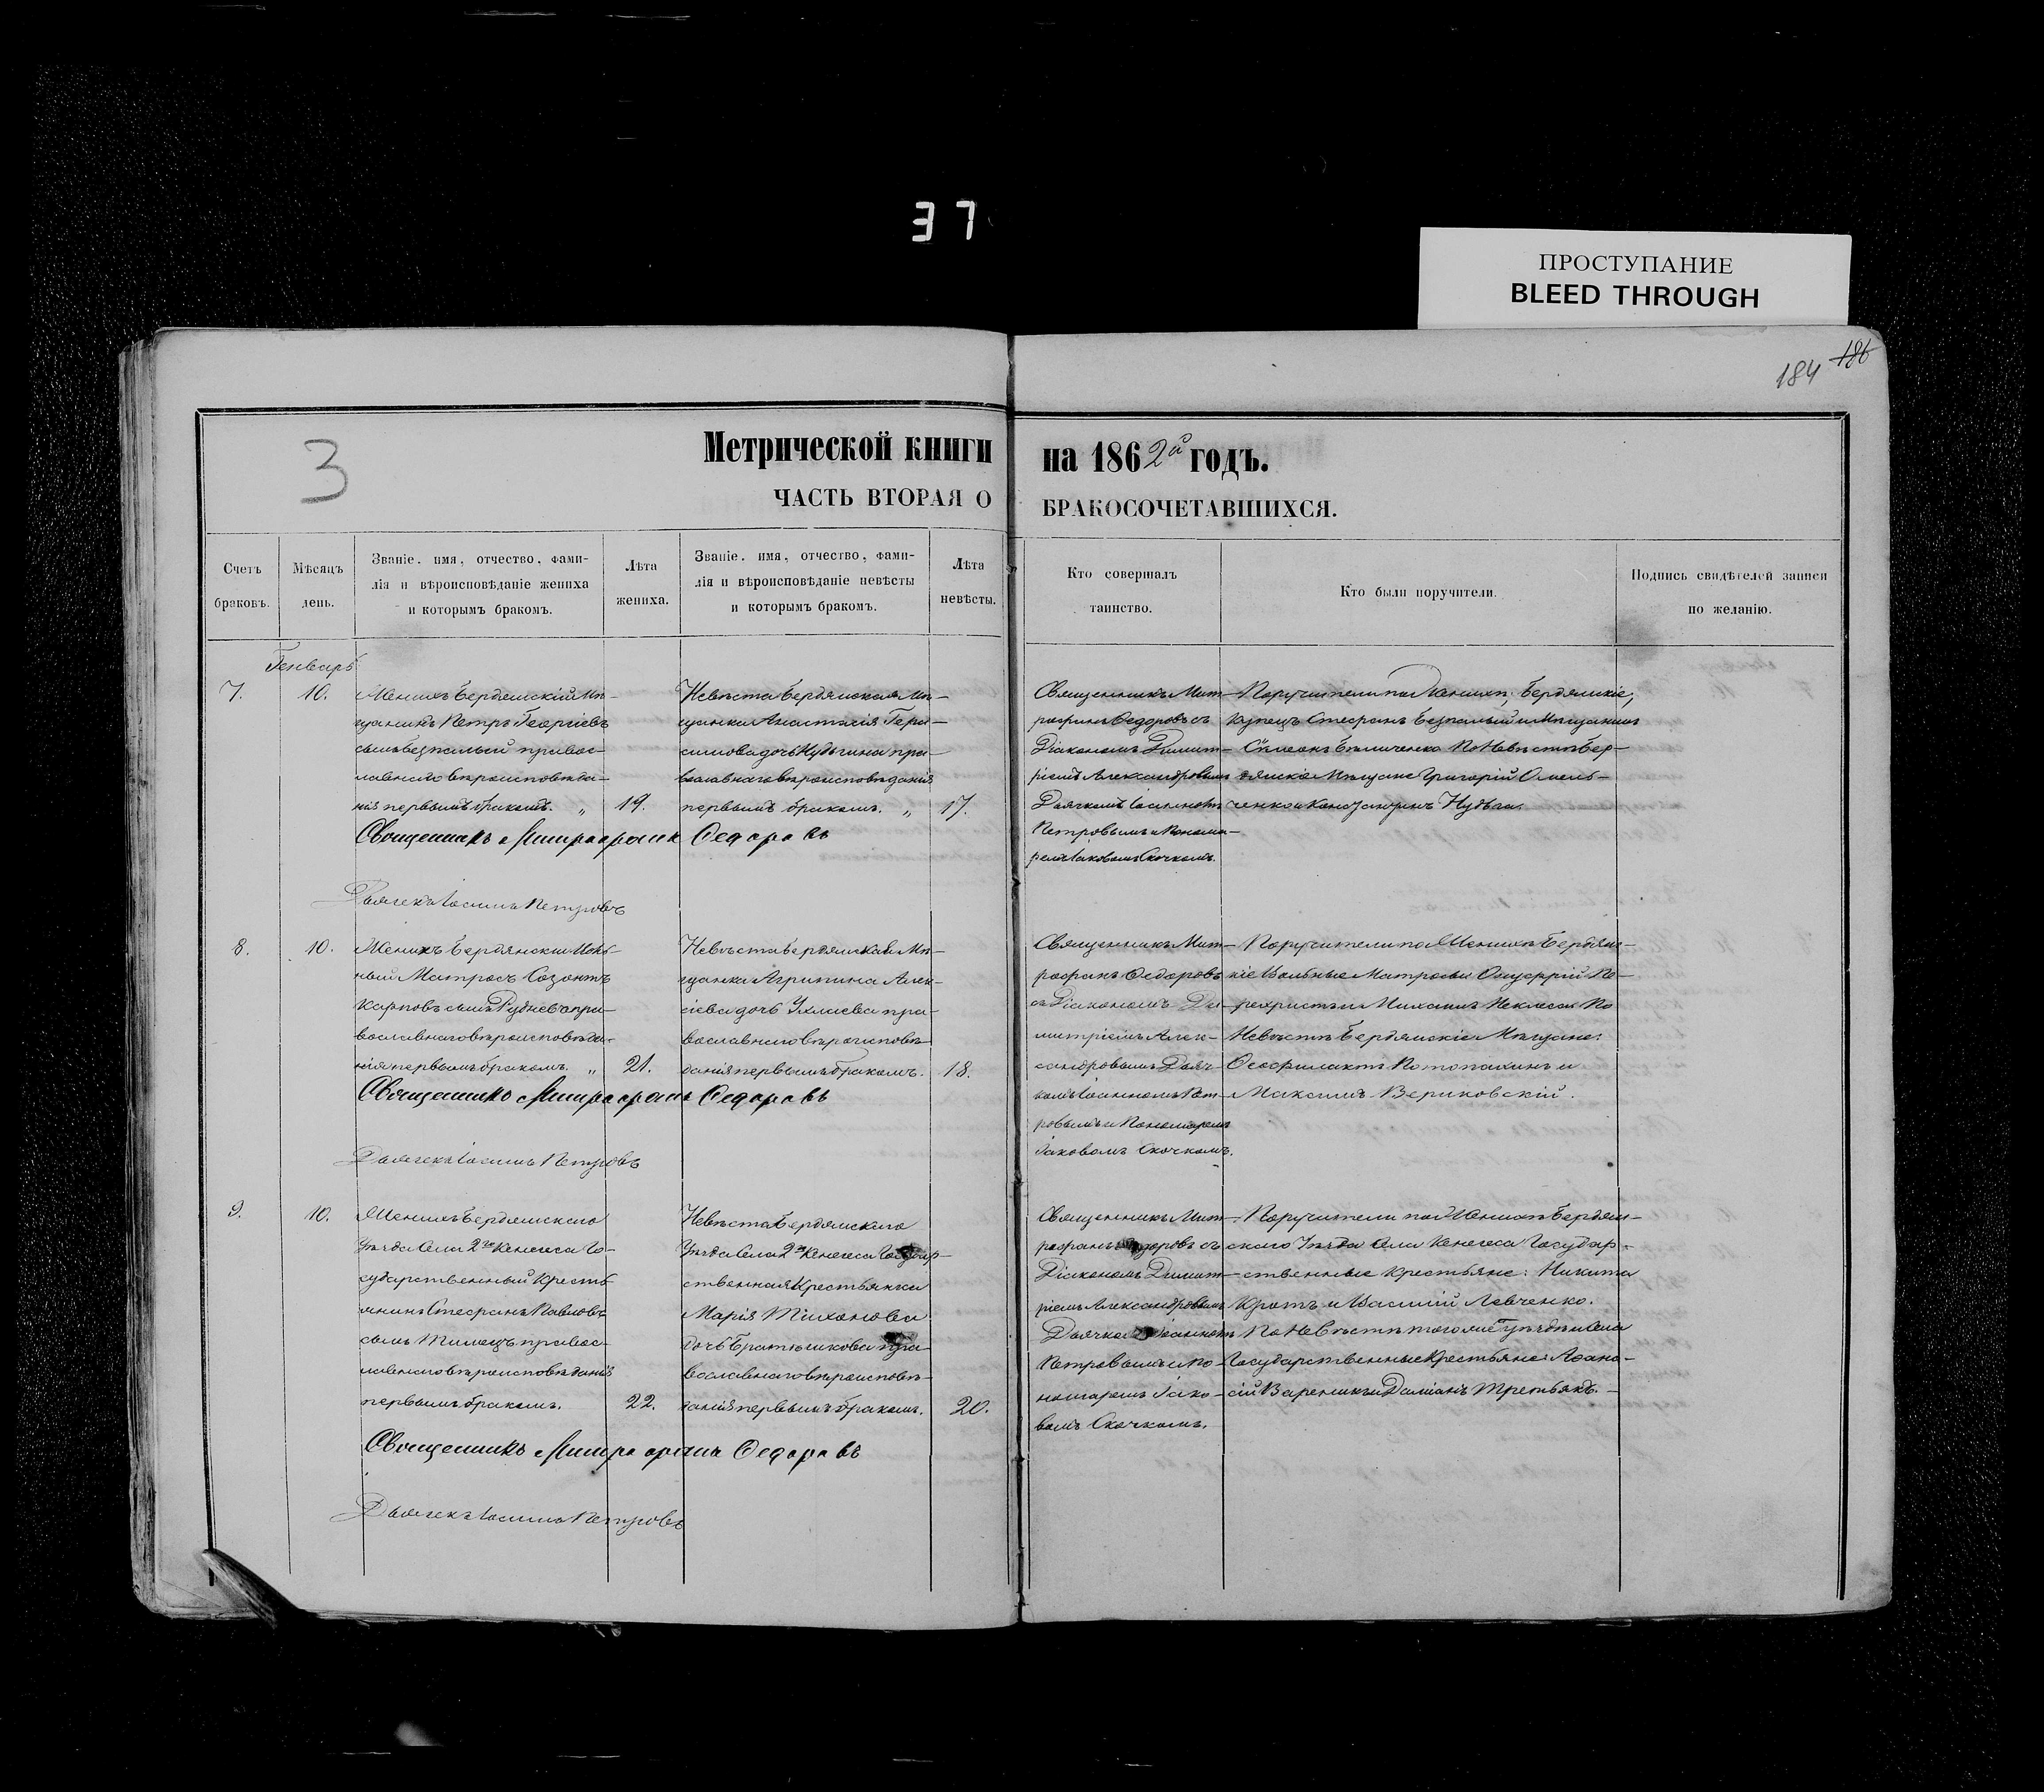 37
ПРОСТУПАНИЕ
BLEED THROUGH
184 186
3
Метрической книги на 1862й годъ.
ЧАСТЬ ВТОРАЯ О БРАКОСОЧЕТАВШИХСЯ.
Счетъ браковъ.
Мѣсяцъ день.
Званіе, имя, отчество, фами-
лія и вѣроисповѣданіе жениха
и которымъ бракомъ.
Лѣта жениха.
Званіе, имя, отчество, фами-
лія и вѣроисповѣданіе невѣсты
и которымъ бракомъ.
Лѣта невѣсты.
Кто совершалъ
таинство.
Кто были поручители.
Подпись свидѣтелей записи
по желанію.
Генварь
7. 10.
Женихъ Бердянскій Мѣ-
щанинъ Петръ Георгіевъ
сынъ Безпалый правос-
лавнаго вѣроисповѣда-
нія первымъ бракомъ. „ 19.
Невѣста Бердянская Мѣ-
щанка Анастасія Гера-
симова дочь пра-
вославнаго вѣроисповѣданія
первымъ бракомъ. „ 17.
Священникъ Мит-
рофанъ Федоровъ съ
Діакономъ Димит-
ріемъ Александровымъ
Дьячкомъ Іоанномъ
Петровымъ и Понома-
ремъ Іаковомъ Скочкомъ.
Поручители по Женихѣ; Бердянскіе;
Купецъ Стефанъ Безпалый и Мѣщанинъ
Симеонъ Бѣличенко По Невѣстѣ Бер-
дянскіе Мѣщане Григорій Омель-
ченко и Константинъ Нудьга.
Священникъ Митрофанъ Федоровъ
Дьячекъ Іоаннъ Петровъ
8. 10.
Женихъ Бердянскій Воль-
ный Матросъ Созонтъ
Карповъ сынъ Рудневъ пра-
вославнаго вѣроисповѣда-
нія первымъ бракомъ. „ 21.
Невѣста Бердянская Мѣ-
щанка Агрипина Алек-
сіева дочь пра-
вославнаго вѣроисповѣ-
данія первымъ бракомъ. 18.
Священникъ Мит-
рофанъ Федоровъ
съ Діакономъ Ди-
митріемъ Алек-
сандровымъ Дьяч-
комъ Іоанномъ Пет-
ровымъ и Пономаремъ
Іаковомъ Скочкомъ.
Поручители по Женихѣ Бердянс-
кіе Вольные Матросы Онуфрій Пе-
рехристъ и Михаилъ Некласа По
Невѣстѣ Бердянскіе Мѣщане:
Феофилактъ Потопахинъ и
Максимъ Вериковскій.
Священникъ Митрофанъ Федоровъ
Дьячекъ Іоаннъ Петровъ
9. 10.
Женихъ Бердянскаго
Уѣзда Села 2го Кенегеса Го-
сударственный Кресть-
янинъ Стефанъ Павловъ
сынъ Тимецъ правос-
лавнаго вѣроисповѣданія
первымъ бракомъ. 22.
Невѣста Бердянскаго
Уѣзда Села 2го Кенегеса Государ-
ственная Крестьянка
Марія Тихонова
дочь Братышкова пра-
вославнаго вѣроисповѣ-
данія первымъ бракомъ. 20.
Священникъ Мит-
рофанъ Федоровъ съ
Діакономъ Димит-
ріемъ Александровымъ
Дьячкомъ Іоанномъ
Петровымъ и По-
номаремъ Іако-
вомъ Скочкомъ.
Поручители по Женихѣ Бердян-
скаго Уѣзда Села Кенегеса Государ-
ственные Крестьяне: Никита
Кротъ и Василій Левченко.
По Невѣстѣ тогоже Уѣзда и Села
Государственные Крестьяне: Афана-
сій Вареникъ и Даміанъ Третьякъ.
Священникъ Митрофанъ Федоровъ
Дьячекъ Іоаннъ Петровъ